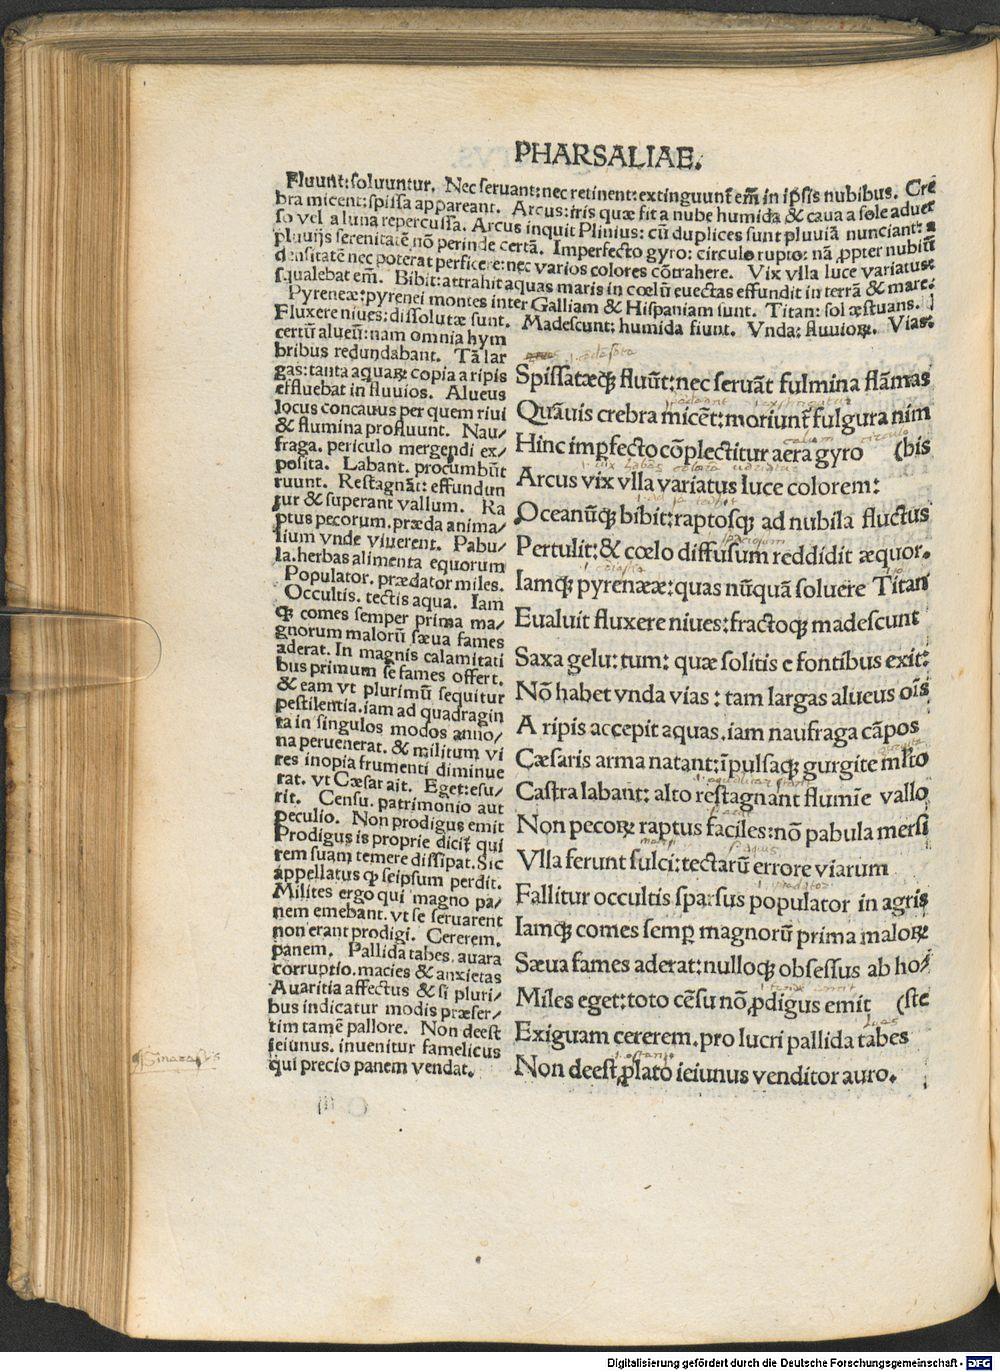 PHARSALIAE.
Fluunt:soluuntur. Nec seruant:nec retinent:extinguunt̃ em̃ in ip̃sis nubibus. Cre
bra micent:spissa appareant. Arcus:iris quæ fit a nube humida & caua a sole aduer
so vel a luna repercussa. Arcus inquit Plinius: cũ duplices sunt pluuiã nunciant: a
pluuijs serenitatẽ nõ perinde certã. Imperfecto gyro: circulo rupto: nã ꝓpter nubiũ
densitatẽ nec poterat perficere:nec varios colores cõtrahere. Vix vlla luce variatus:
squalebat em̃. Bibit:attrahit aquas maris in cœlũ euectas effundit in terrã & mare.
Pyreneæ:pyrenei montes inter Galliam & Hispaniam sunt. Titan: sol æstuans.
Fluxere niues:dissolutæ sunt. Madescunt: humida fiunt. Vnda: fluuioꝝ. Vias:
certũ alueũ:nam omnia hym
bribus redundabant. Tã lar
gas:tanta aquaꝝ copia a ripis
effluebat in fluuios. Alueus
locus concauus per quem riui
& flumina profluunt. Nau/
fraga. periculo mergendi ex/
posita. Labant. procumbũt
ruunt. Restagnãt: effundun
tur & superant vallum. Ra
ptus pecorum. præda anima/
lium vnde viuerent. Pabu/
la.herbas alimenta equorum
Populator. prædator miles.
Occultis. tectis aqua. Iam
qꝫ comes semper prima ma/
gnorum malorũ sæua fames
aderat. In magnis calamitati
bus primum se fames offert.
& eam vt plurimũ sequitur
pestilentia.iam ad quadragin
ta in singulos modos anno/
na peruenerat. & militum vi
res inopia frumenti diminue
rat. vt Cæsar ait. Eget:esu/
rit. Censu. patrimonio aut
peculio. Non prodigus emit
Prodigus is proprie dicit̃ qui
rem suam temere dissipat. Sic
appellatus ꝙ seipsum perdit.
Milites ergo qui magno pa/
nem emebant. vt se seruarent
non erant prodigi. Cererem.
panem. Pallida tabes. auara
corruptio. macies & anxietas
Auaritia affectus & si pluri/
bus indicatur modis præser/
tim tamẽ pallore. Non deest
ieiunus. inuenitur famelicus
qui precio panem vendat.
Spissatæqꝫ fluũt:nec seruãt fulmina flãmas
Quãuis crebra micẽt:moriunt̃ fulgura nim
Hinc imꝑfecto cõplectitur aera gyro (bis
Arcus vix vlla variatus luce colorem:
Oceanũqꝫ bibit:raptosqꝫ ad nubila fluctus
Pertulit:& cœlo diffusum reddidit æquor.
Iamqꝫ pyrenææ:quas nũquã soluere Titan
Eualuit fluxere niues:fractoqꝫ madescunt
Saxa gelu: tum: quæ solitis e fontibus exit:
Nõ habet vnda vias : tam largas alueus oĩs
A ripis accepit aquas.iam naufraga cãpos
Cæsaris arma natant:ĩpulsaqꝫ gurgite ml̃to
Castra labant: alto restagnant flumĩe vallo
Non pecoꝝ raptus faciles:nõ pabula mersi
Vlla ferunt sulci:tectarũ errore viarum
Fallitur occultis sparsus populator in agris
Iamqꝫ comes semꝑ magnorũ prima maloꝝ
Sæua fames aderat:nulloqꝫ obsessus ab ho/
Miles eget:toto cẽsu nõ ꝓdigus emit (ste
Exiguam cererem.pro lucri pallida tabes
Non deest ꝓlato ieiunus venditor auro.
Digitalisierung gefördert durch die Deutsche Forschungsgemeinschaft - DFG